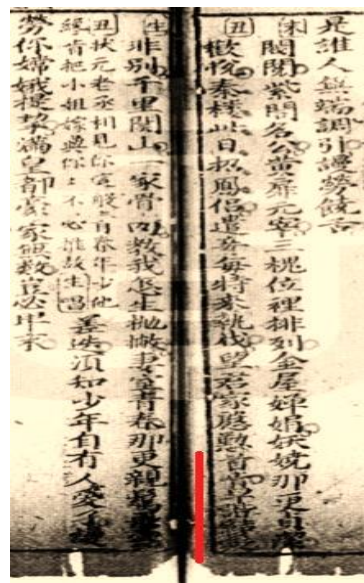 是誰人無端調引謾勞饒舌
末 閥閱紫閣名公黃扉元宰三槐位裡排列金屋嬋娟妖嬈那更貞潔
丑 歡悅秦樓此日招鳳侶遣妾每特來執伐望君家慇懃肯首早諧結髮
生 非別千里関山一家骨肉教我怎生拋撇妻室青春那更親鬢垂雪
丑 狀元老丞相見你這般青春年少他
纔肯把小姐嫁與你〻不必推故生唱
差迭須知少年自有人愛了謾
勞你嫦娥提挈滿皇都豪家無數豈必卑末